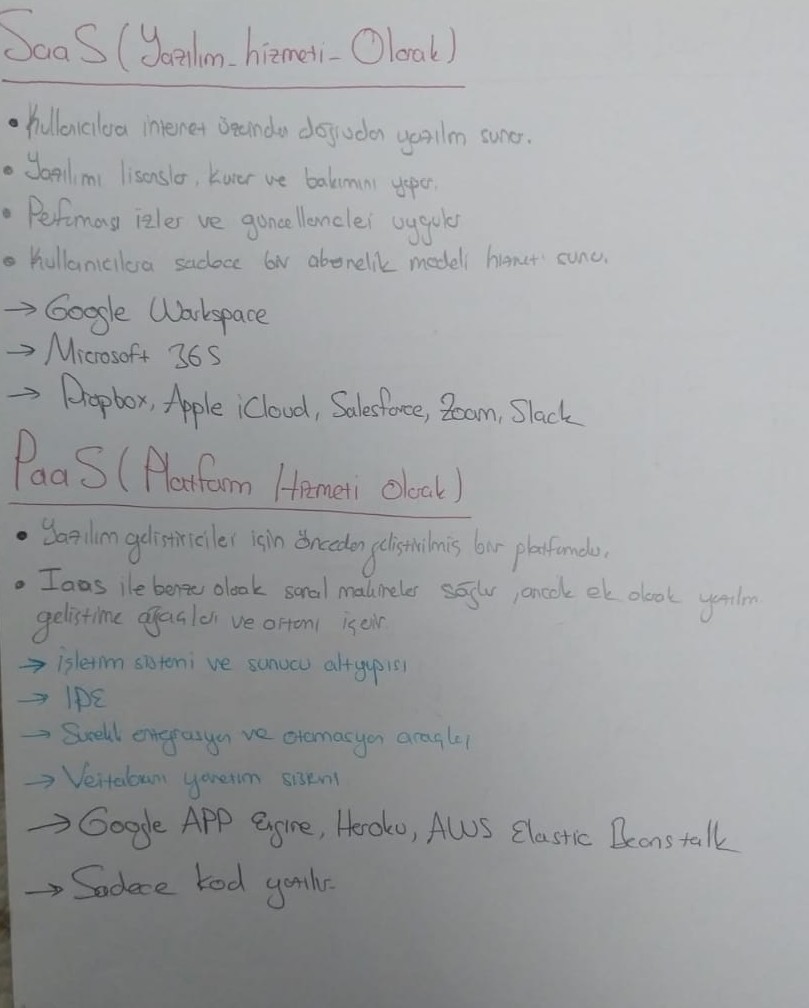 SaaS (Yazılım - hizmeti - Olarak)
• Kullanıcılara internet üzerinden doğrudan yazılım sunar.
• Yazılımı lisanslar, kurar ve bakımını yapar.
• Perfomansı izler ve güncellemeleri uygular
• Kullanıcılara sadece bir abonelik modeli hizmet sunar.
→ Google Workspace
→ Microsoft 365
→ Dropbox, Apple iCloud, Salesforce, Zoom, Slack
PaaS (Platform Hizmeti Olarak)
• Yazılım geliştiriciler için önceden geliştirilmiş bir platformdur.
• Iaas ile benzer olarak sanal makineler sağlar, ancak ek olarak yazılım
geliştirme araçları ve ortamı içerir.
→ işletim sistemi ve sunucu altyapısı
→ IDE
→ Sürekli entegrasyon ve otomasyon araçları
→ Veritabanı yönetim sistemi
→ Google APP Engine, Heroku, AWS Elastic Beanstalk
→ Sadece kod yazılır.